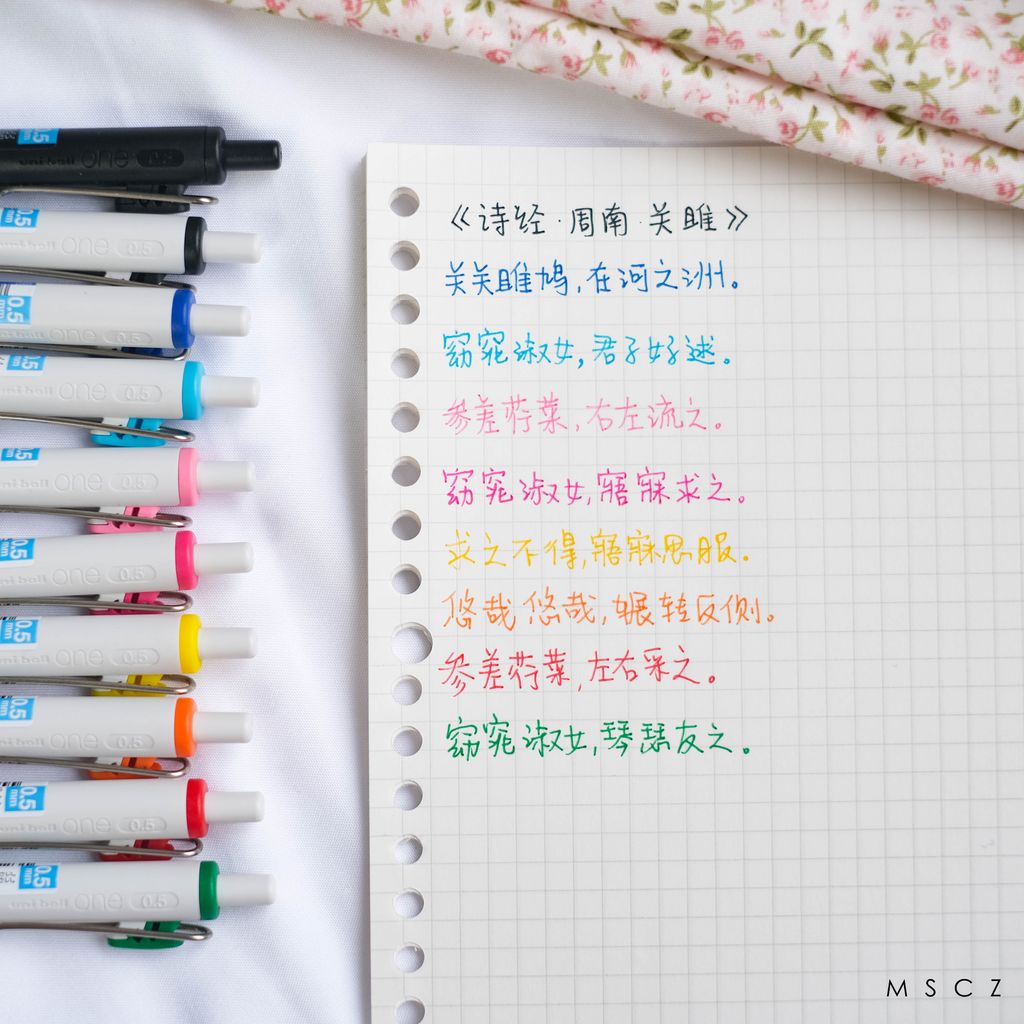 《诗经·周南·关雎》
关关雎鸠,在河之洲。
窈窕淑女,君子好逑。
参差荇菜,右左流之。
窈窕淑女,寤寐求之。
求之不得,寤寐思服。
悠哉悠哉,辗转反侧。
参差荇菜,左右采之。
窈窕淑女,琴瑟友之。
uni-ball one 0.5
0.5
one 0.5
0.5
one 0.5
0.5
one 0.5
0.5
one 0.5
0.5
one 0.5
0.5
one 0.5
0.5
one 0.5
0.5
one 0.5
0.5
one 0.5
MSCZ